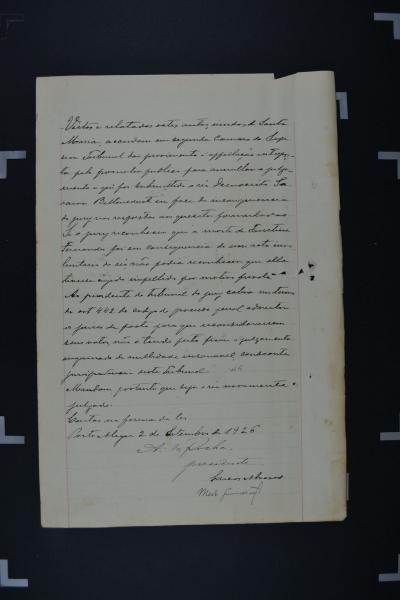 Vistos e relatados estes autos, vindos de Santa
Maria, accordam em segunda Camara do Supe-
rior Tribunal dar provimento á appellação interpos-
ta pelo promotor publico para annullar o julga-
mento a que foi submettido o réo Democrito Sa-
Bettencourt em face da incongruencia
do jury nas respostas aos quesitos formulados.
Se o jury reconheceu que a morte de
Fernandes foi em consequencia de um acto invo-
luntario do réo não podia reconhecer que elle
tivesse agido impellido por motivo
Ao presidente do Tribunal do jury cabia, nos termos
do art 442 do codigo do processo penal, advertir
os juizes de facto para que reconsiderassem
seus votos; não o tendo feito ficou o julgamento
inquinado de nullidade insanavel, consoante
neste Tribunal.
Mandam portanto que seja o réo novamente
julgado.
Custas na forma da lei.
Porto Alegre 2 de Setembro de 1926
A. da Rocha
presidente